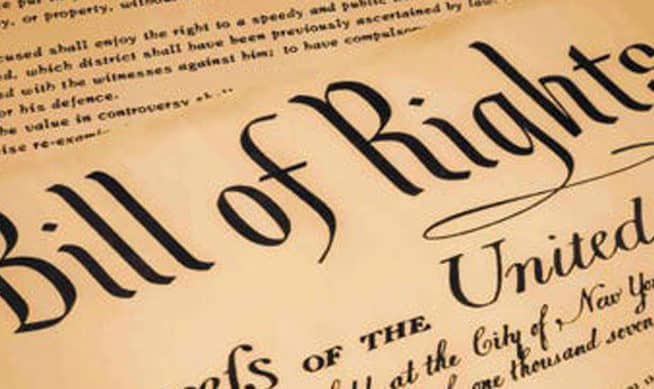 y, or property, without
cused shall enjoy the right to a speedy and public
d, which district shall have been previously ascertained by law,
d with the witnesses against him; to have compulsory
or his defence.
he value in controversy sh
ise re-exami
Bill of Rights
United
els OF THE
at the City of New Yo
one thousand seven